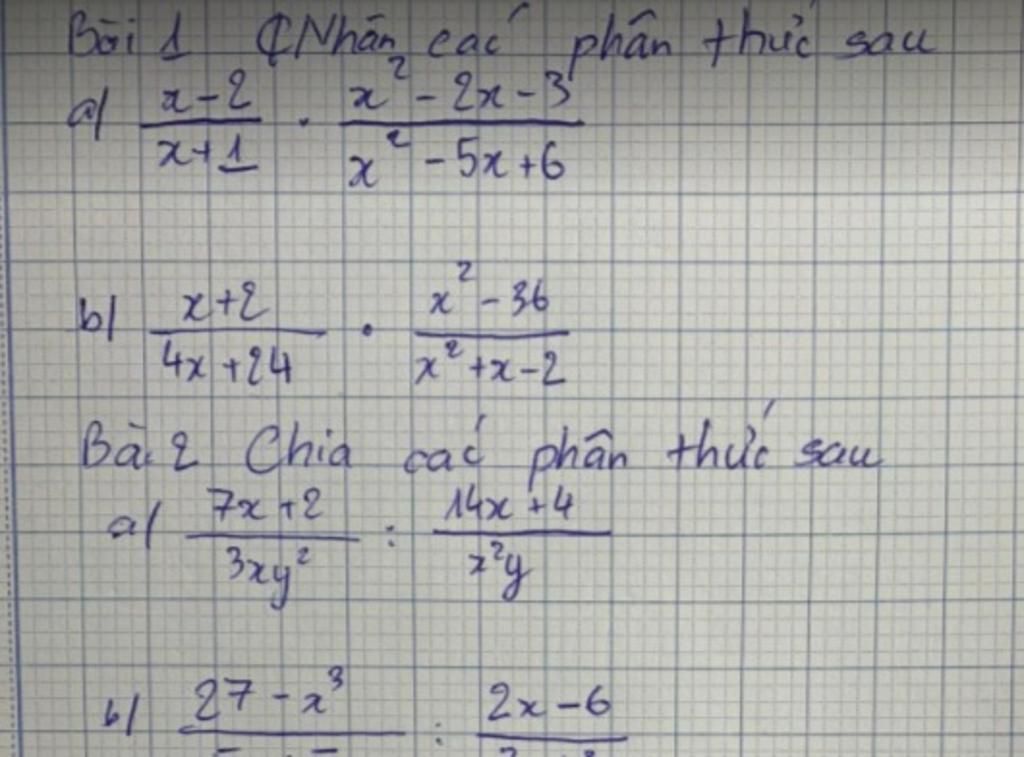 Bài 1 Nhân các phân thức sau
a) \frac{x-2}{x+1} \cdot \frac{x^2-2x-3}{x^2-5x+6}
b) \frac{x+2}{4x+24} \cdot \frac{x^2-36}{x^2+x-2}
Bài 2 Chia các phân thức sau
a) \frac{7x+2}{3xy^2} : \frac{14x+4}{x^2y}
b) 27-x^3 : 2x-6